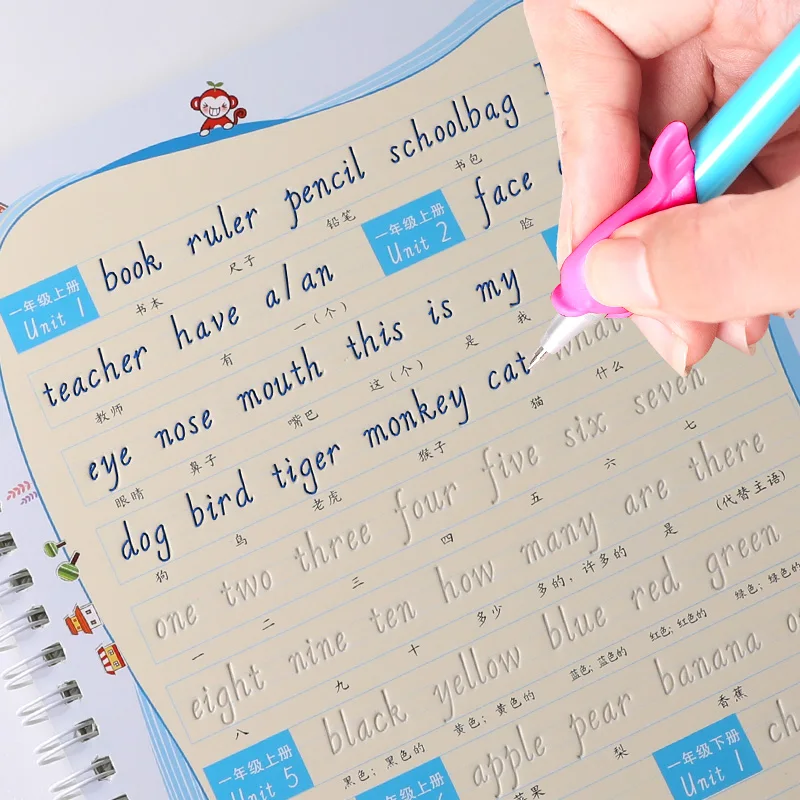 一年级上册
Unit 1
book ruler pencil schoolbag
书本 尺子 铅笔 书包
teacher have a/an
一年级上册
Unit 2
face
教师 有 一(个) 脸
eye nose mouth this is my
眼睛 鼻子 嘴巴 这(个) 是 我
dog bird tiger monkey cat what
狗 鸟 老虎 猴子 猫 什么
one two three four five six seven
一 二 三 四 五 六 七
eight nine ten how many are there
八 九 十 多少 多的，许多的 是 (代替主语)
一年级上册
Unit 5
black yellow blue red green
黑色；黑色的 黄色；黄色的 蓝色；蓝色的 红色；红色的 绿色；绿色的
一年级上册
apple pear banana
苹果 梨 香蕉
一年级下册
Unit 1